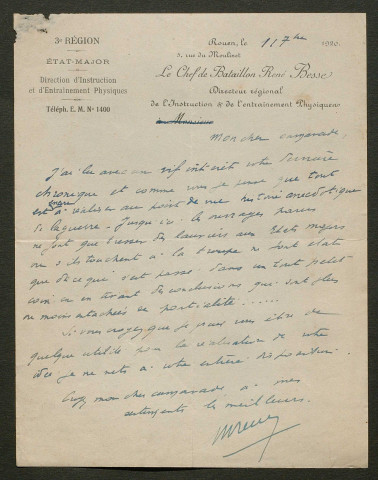 3e RÉGION
ÉTAT-MAJOR
Direction d'Instruction
et d'Entrainement Physiques
Téléph. E. M. No 1400
Rouen, le 11 7bre 1920.
5, rue du Moulinet
Le Chef de Bataillon René Besse
Directeur régional
de l'Instruction & de l'entrainement Physiques
à Monsieur
Mon cher camarade,
J'ai lu avec un vif intérêt votre dernière
chronique et comme vous je pense que tout
est à réaliser au point de vue histoire anecdotique
de la guerre. Jusqu'ici les ouvrages parus
ne font que tresser des lauriers aux Etats majors
ou s'ils touchent à la troupe ne font état
que de ce qui s'est passé dans un tout petit
coin en en tirant des conclusions qui sont plus
ou moins entachées de partialité......
Si vous croyez que je puisse vous être de
quelque utilité pour la réalisation de votre
idée je me mets à votre entière disposition.
Croyez mon cher camarade à mes
sentiments les meilleurs.